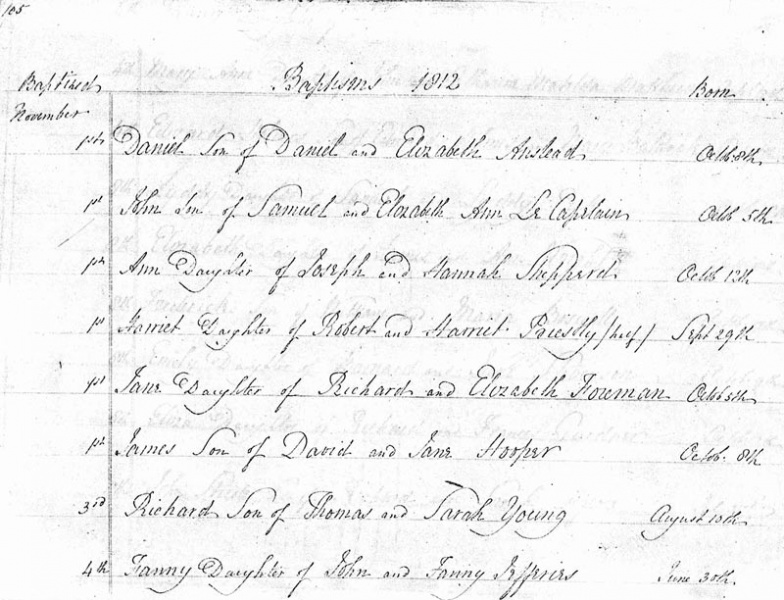 105
Baptized Baptisms 1812 Born
November
1st Daniel Son of Daniel and Elizabeth Anslead Octb. 8th
1st John Son of Samuel and Elizabeth Ann Le Captain Octb 5th
1st Ann Daughter of Joseph and Hannah Shepperd Octb 12th
1st Harriet Daughter of Robert and Harriet Priestly Sept 29th
1st Jane Daughter of Richard and Elizabeth Foreman Octb 5th
1st James Son of David and Jane Hooper Octb. 8th
3rd Richard Son of Thomas and Sarah Young August 10th
4th Fanny Daughter of John and Fanny Jefferies June 30th